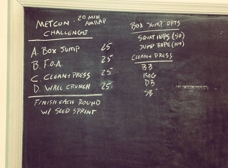 METCON 20 MIN AMRAP
CHALLENGE
A. BOX JUMP 25
B. F.O.A. 25
C. CLEAN & PRESS 25
D. WALL CRUNCH 25
FINISH EACH ROUND
W/ SLED SPRINT
BOX JUMP OPTS
SQUAT JUMPS (50)
JUMP ROPE (100)
CLEAN & PRESS
BB
KBG
DB
SB